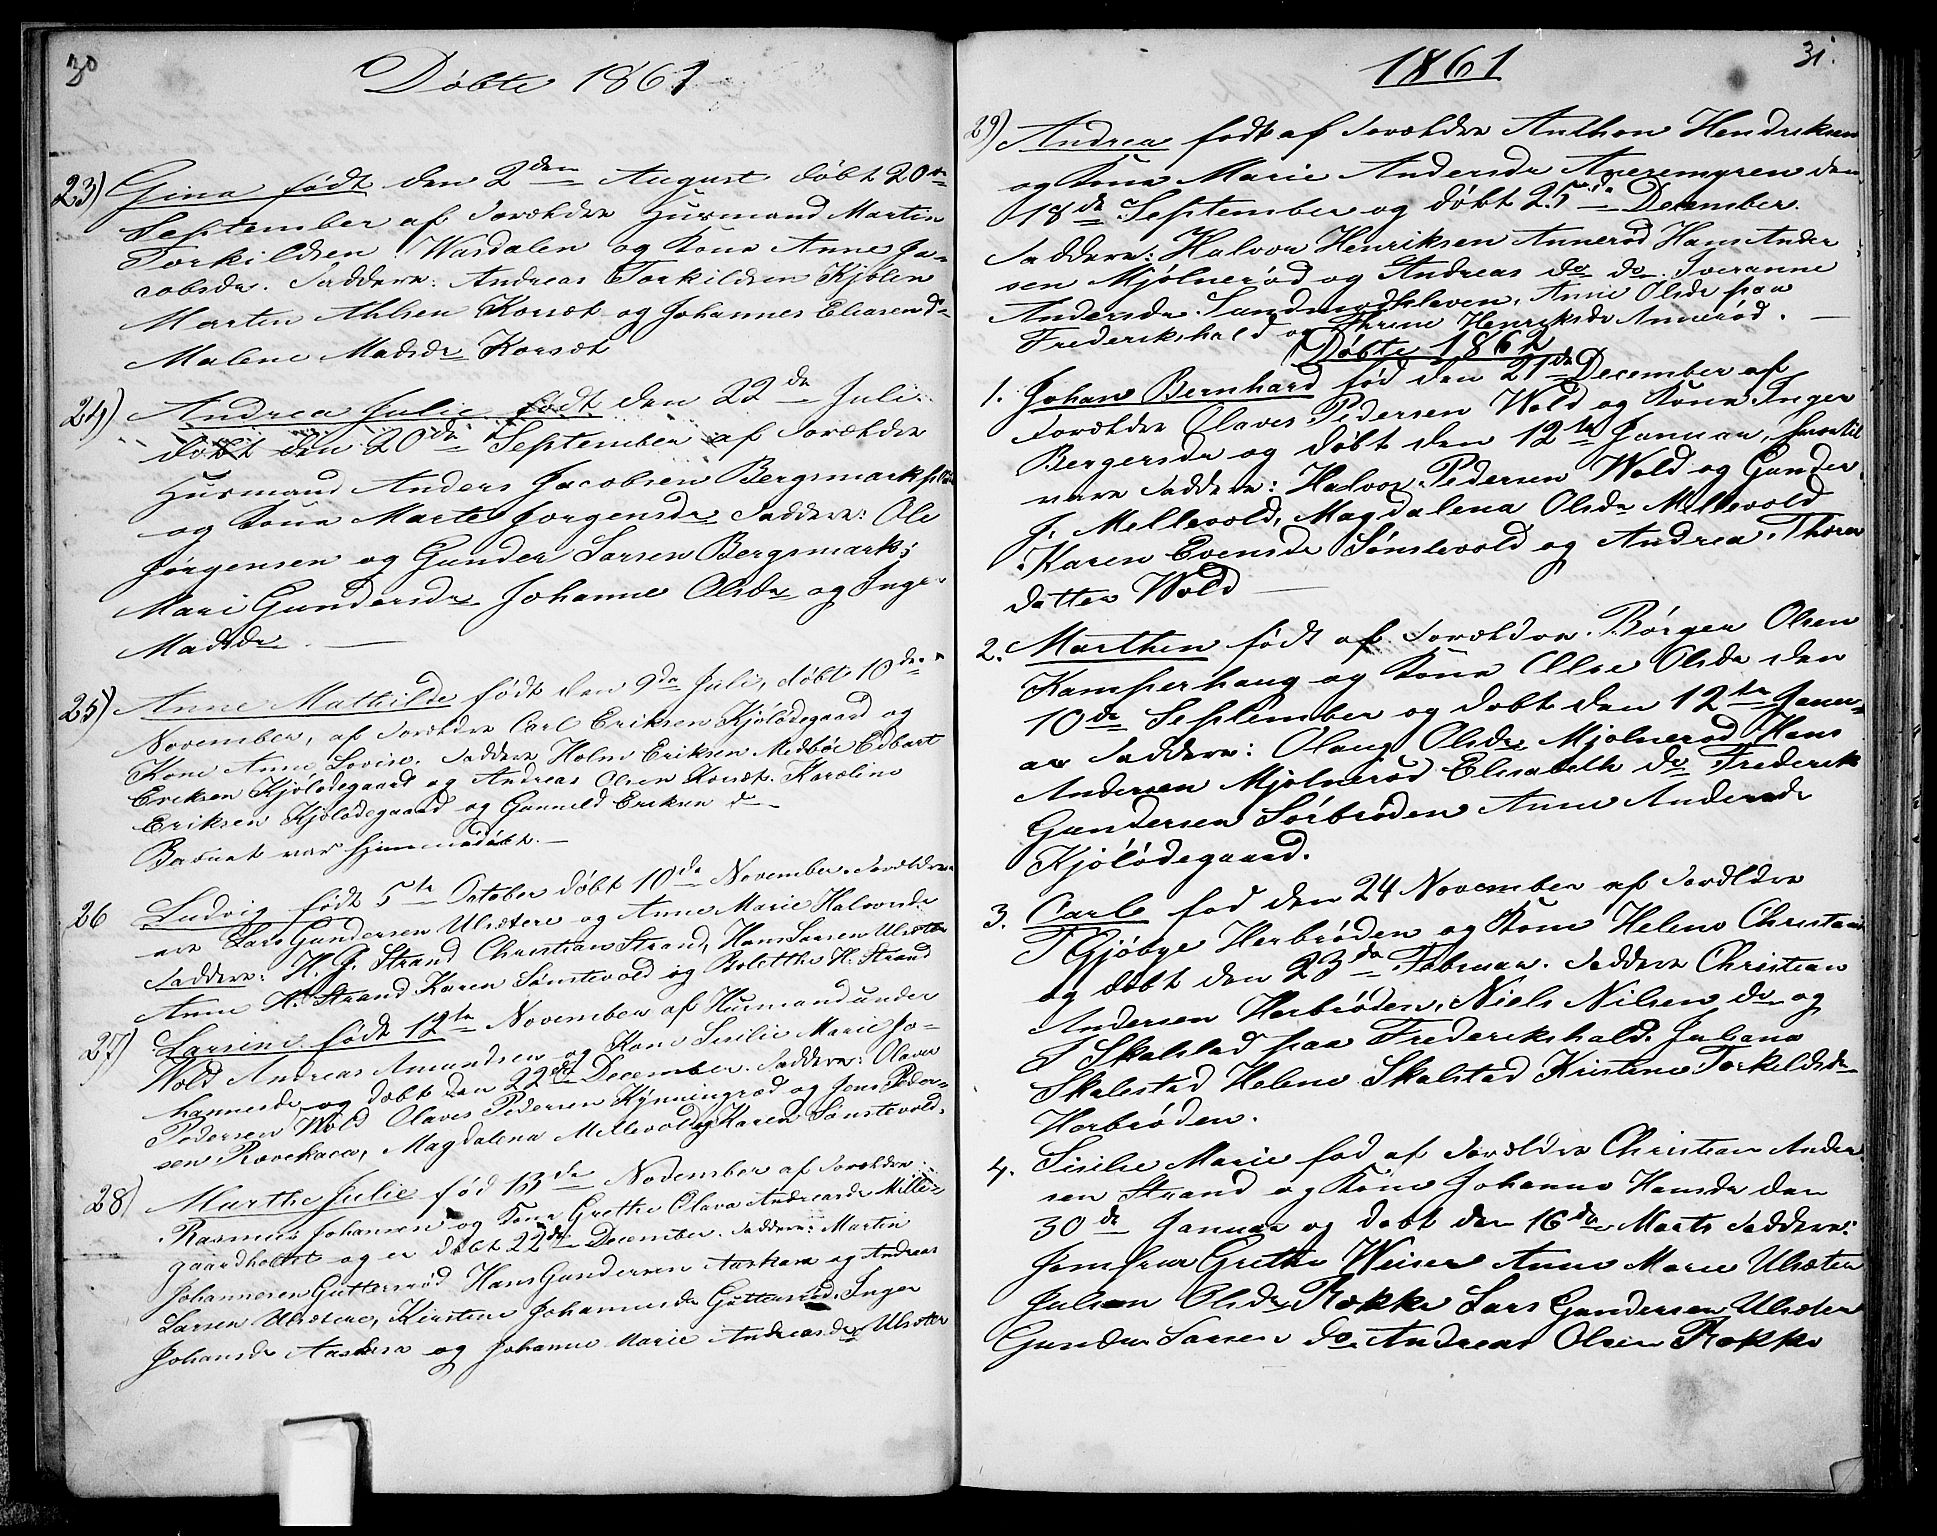 30
Döbte 1861
23) Gina födt den 2den August döbt 20de
September af Forældre Husmand Martin
Torkildsen Wasdalen og Kone Anne Ja-
cobsdr. Faddere: Andreas Torkildsen Kjölen
Martin Ahlsen Korsæt og Johannes Eliasen do
Malene Madsdr Korsæt
24) Andrea Julie födt den 22de Juli
döbt den 20de September af Forældre
Husmand Anders Jacobsen Bergsmark
og Kone Marte Jorgensdr Faddere: Ole
Jörgensen og Gunder Larsen Bergsmark;
Mari Gundersdr Johanne Olsdr og Inge
Madsdr
25) Anne Mathilde födt den 9de Juli, döbt 10de
November, af Forældre Carl Eriksen Kjölödegaard og
Kone Anne Lovise. Faddere Holm Eriksen Medböe Edbart
Eriksen Kjölödegaard og Andreas Olsen Korsæt. Karoline
Eriksen Kjölödegaard og Gunnild Eriksen do
Barnet var hjemmedöbt.
26 Ludvig födt 5te October döbt 10de November. Forældre
er Lars Gundersen Ulsætere og Anne Marie Halvorsdr
Faddere: H. G. Strand Christian Strand, Hans Larsen Ulsæter
Anne H. Strand Karen Sönstevold og Bolette H. Strand
27) Larsine födt 12te November af Husmand under
Wold Andreas Amundsen og Kone Sisilie Marie Jo-
hannesdr og döbt den 22de December. Faddere: Olaves
Pedersen Wold Olaves Pedersen Kynningröd og Jens Peder-
sen Ravekaca, Magdalena Mellevold og Karen Sönstevold.
28) Marthe Julie föd 13de November af Forældre
Rasmus Johansen og Kone Grethe Olava Andreasdr Mille-
gaardholtet og er döbt 22de December. Faddere: Martin
Johannesen Guttersröd Hans Gundersen Aaskara og Andreas
Larsen Ulsætere, Kirstine Johannesdr Guttersröd, Inger
Johansdr Aaskera og Johanne Marie Andreasdr Ulsæter
1861
31.
29) Andrea födt af Forældre Anthon Hendriksen
og Kone Marie Andersdr Aseremyren den
18de September og döbt 25de December.
Faddere: Halvor Henriksen Anneröd Hans Ander
sen Mjölneröd og Andreas do do. Iveranne
Andersdr Sundmodkleven, Anne Olsdr paa
Frederikshald og Thrine Henriksdr Anneröd.
Döbte 1862
1. Johan Bernhard föd den 21de December af
Forældre Olaves Pedersen Wold og Kone Inger
Bergersdr og döbt den 12te Januar, hertil
vare Faddere: Halvor Pedersen Wold og Gunder
J. Mellevold, Magdalena Olsdr Mellevold
Karen Evensdr Sönstevold og Andrea Thores
datter Wold
2. Marthen födt af Forældre Börger Olsen
Kamperhaug og Kone Else Olsdr den
10de September og döbt den 12te Janu-
ar Faddere: Olaug Olsdr Mjolneröd Hans
Andersen Mjolneröd Elisabeth do Frederik
Gundersen Sörbröden Anne Andersdr
Kjölödegaard.
3. Carle fod den 24 November af Foræld­re
T Gjöbye Herbröden og Kone Helene Christiansdr
og döbt den 23de Februar. Faddere Christian
Andersen Herbröden, Niels Nilsen do og
S Skalstad paa Frederikshald. Juliane
Skalestad Helene Skalstad Kristine Torkeldsdr
Herbröden.
4. Sisilie Marie fod af Forældre Christian Ander
sen Strand og Kone Johanne Hansdr den
30de Januar og dobt den 16de Marts Faddere:
Jomfrue Grethe Weiser Anne Marie Ulsæter
Julian Olsdr Rokke Lars Gundersen Ulsæter
Gunder Larsen do. Andreas Olsen Rokke